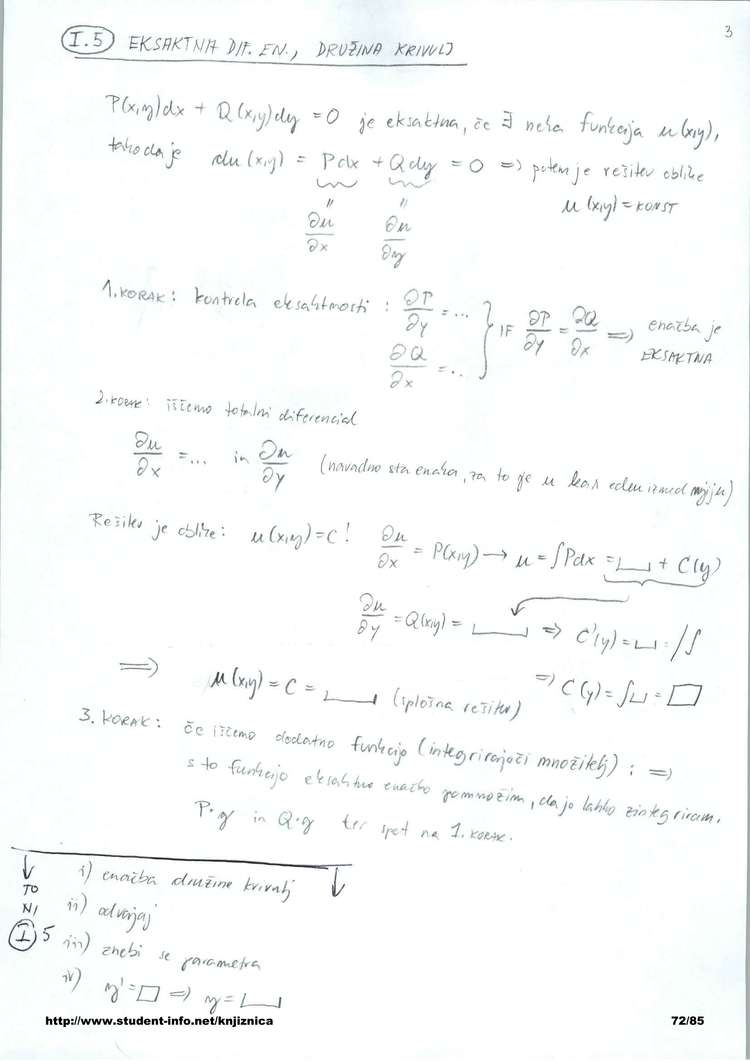 3
I.5 EKSAKTNA DIF. EN., DRUŽINA KRIVULJ
P(x,y)dx + Q(x,y)dy = 0 je eksaktna, če ∃ neka funkcija u(x,y),
tako da je du(x,y) = Pdx + Qdy = 0 => potem je rešitev oblike
u(x,y) = KONST
" "
∂u/∂x ∂u/∂y
1. KORAK: kontrola eksaktnosti: ∂P/∂y = ...
∂Q/∂x = ...
} IF ∂P/∂y = ∂Q/∂x => enačba je
EKSAKTNA
2. KORAK: iščemo totalni diferencial
∂u/∂x = ... in ∂u/∂y (navadno sta enaka, za to je u kar eden izmed njiju)
Rešitev je oblike: u(x,y) = C! ∂u/∂x = P(x,y) → u = ∫Pdx = ⎵ + C(y)
∂u/∂y = Q(x,y) = ⎵ => C'(y) = ⎵ /∫
=> C(y) = ∫⎵ = □
=> u(x,y) = C = ⎵ (splošna rešitev)
3. KORAK: če iščemo dodatno funkcijo (integrirajoči množitelj): =>
s to funkcijo eksaktno enačbo pomnožim, da jo lahko zintegriram.
P·g in Q·g ter spet na 1. KORAK.
↓ ↓
TO
NI
I 5
i) enačba družine krivulj
ii) odvajaj
iii) znebi se parametra
iv) y' = □ => y = ⎵
http://www.student-info.net/knjiznica
72/85